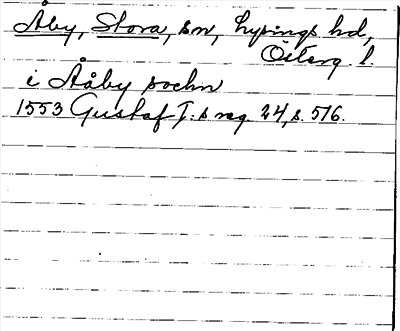 Åby, Stora, sn, Lysings hd,
Österg. l.
i Aåby sochn
1553 Gustaf I:s reg. 24, s. 516.